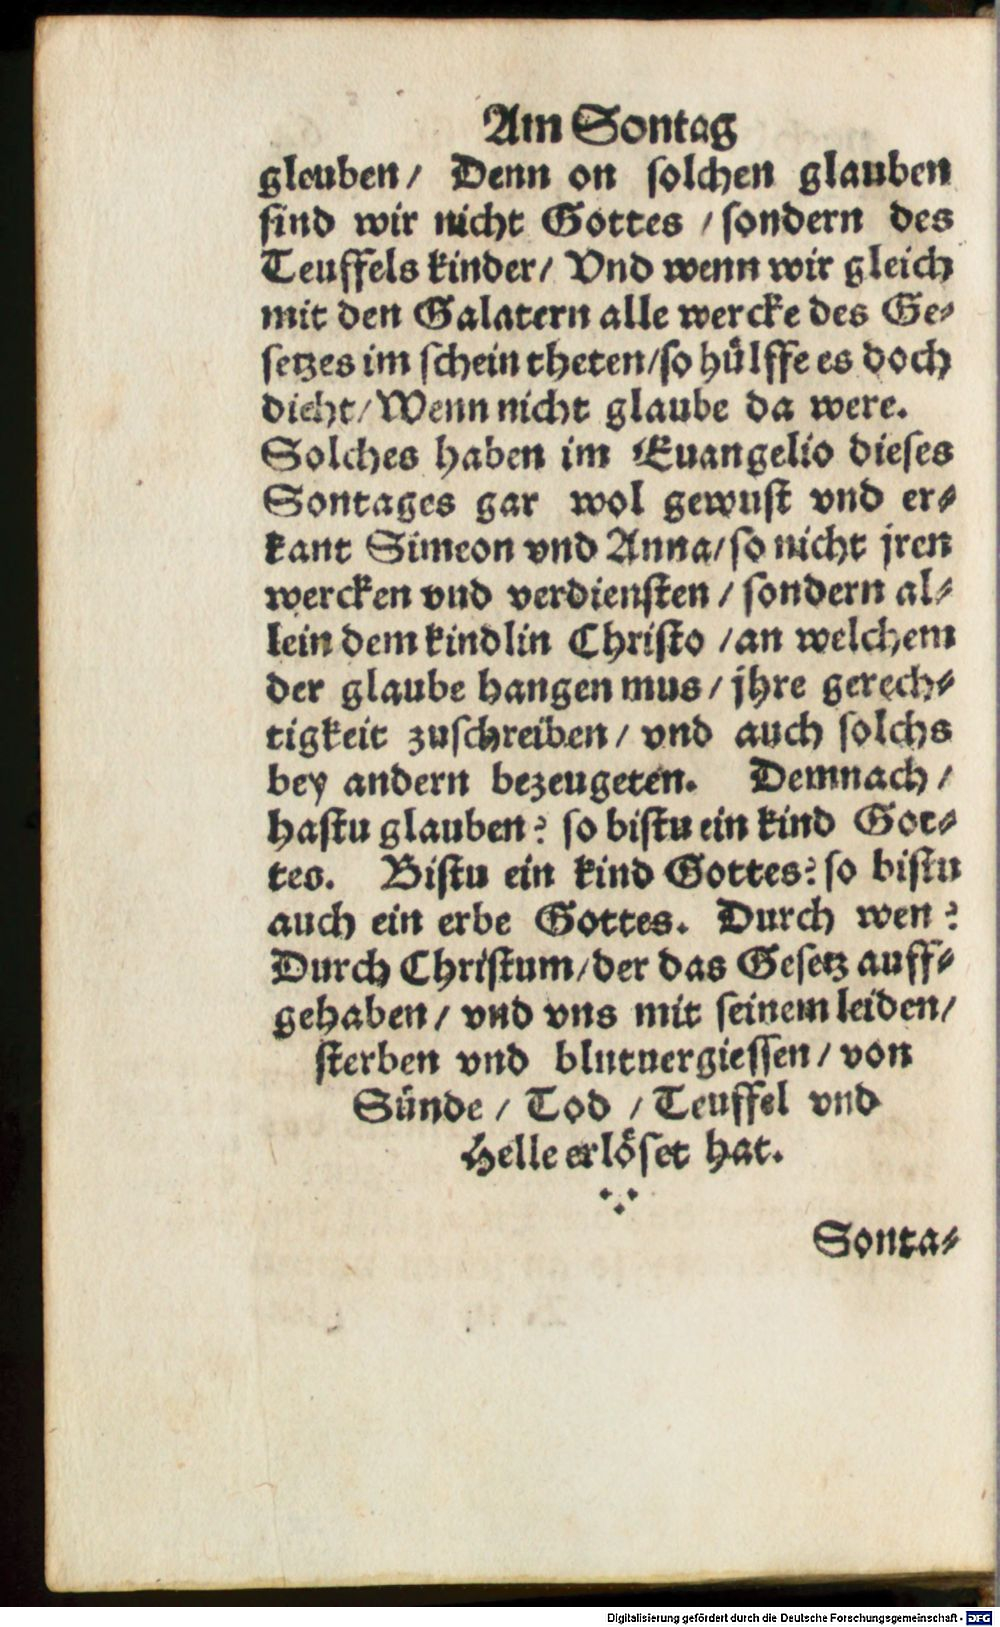 Am Sontag
gleuben/ Denn on solchen glauben
sind wir nicht Gottes /sondern des
Teuffels kinder/ Vnd wenn wir gleich
mit den Galatern alle wercke des Ge-
setzes im schein theten/so hülffe es doch
dicht/Wenn nicht glaube da were.
Solches haben im Euangelio dieses
Sontages gar wol gewust vnd er-
kant Simeon vnd Anna/so nicht jren
wercken vnd verdiensten / sondern al-
lein dem kindlin Christo /an welchem
der glaube hangen mus/ jhre gerech-
tigkeit zuschreiben/ vnd auch solchs
bey andern bezeugeten. Demnach/
hastu glauben? so bistu ein kind Got-
tes. Bistu ein kind Gottes? so bistu
auch ein erbe Gottes. Durch wen?
Durch Christum/der das Gesetz auff-
gehaben/ vnd vns mit seinem leiden/
sterben vnd blutuergiessen/ von
Sünde / Tod / Teuffel vnd
Helle erlöset hat.
Sonta-
Digitalisierung gefördert durch die Deutsche Forschungsgemeinschaft - DFG